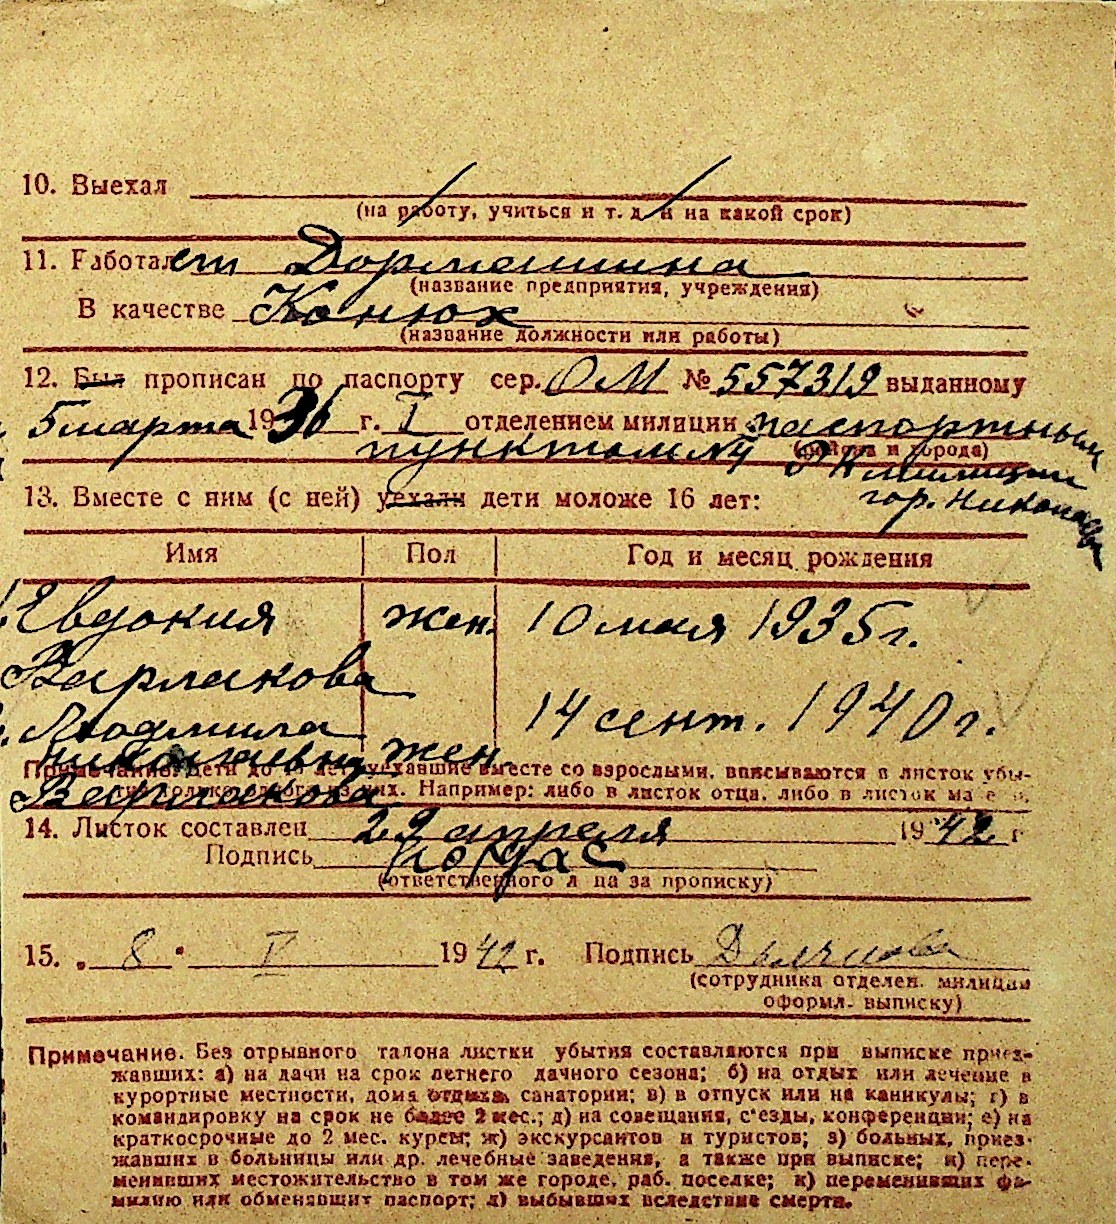 10. Выехал
(на работу, учиться и т. д. и на какой срок)
11. Работает Дормашина
(название предприятия, учреждения)
В качестве Конюх
(название должности или работы)
12. Был прописан по паспорту сер. ОМ № 557319 выданному
5 марта 1936 г. I отделением милиции паспортным
(района и города)
пунктом №4 РК милиции
гор. Николаев
13. Вместе с ним (с ней) уехали дети моложе 16 лет:
Имя Пол Год и месяц рождения
Евдокия жен. 10 мая 1935 г.
Варлакова
Людмила 14 сент. 1940 г.
Николаевна жен.
Варлакова
Примечание. Дети до 16 лет, уехавшие вместе со взрослыми, вписываются в листок убы-
тия только одного из них. Например: либо в листок отца, либо в листок матери.
14. Листок составлен 29 апреля 1942 г
Подпись
(ответственного лица за прописку)
15. „ 8 " V 1942 г. Подпись
(сотрудника отделен. милиции
оформл. выписку)
Примечание. Без отрывного талона листки убытия составляются при выписке приез-
жавших: а) на дачи на срок летнего дачного сезона; б) на отдых или лечение в
курортные местности, дома отдыха, санатории; в) в отпуск или на каникулы; г) в
командировку на срок не более 2 мес.; д) на совещания, с'езды, конференции; е) на
краткосрочные до 2 мес. курсы; ж) экскурсантов и туристов; з) больных, приез-
жавших в больницы или др. лечебные заведения, а также при выписке; и) пере-
менивших местожительство в том же городе, раб. поселке; к) переменивших фа-
милию или обменявших паспорт; л) выбывших вследствие смерти.